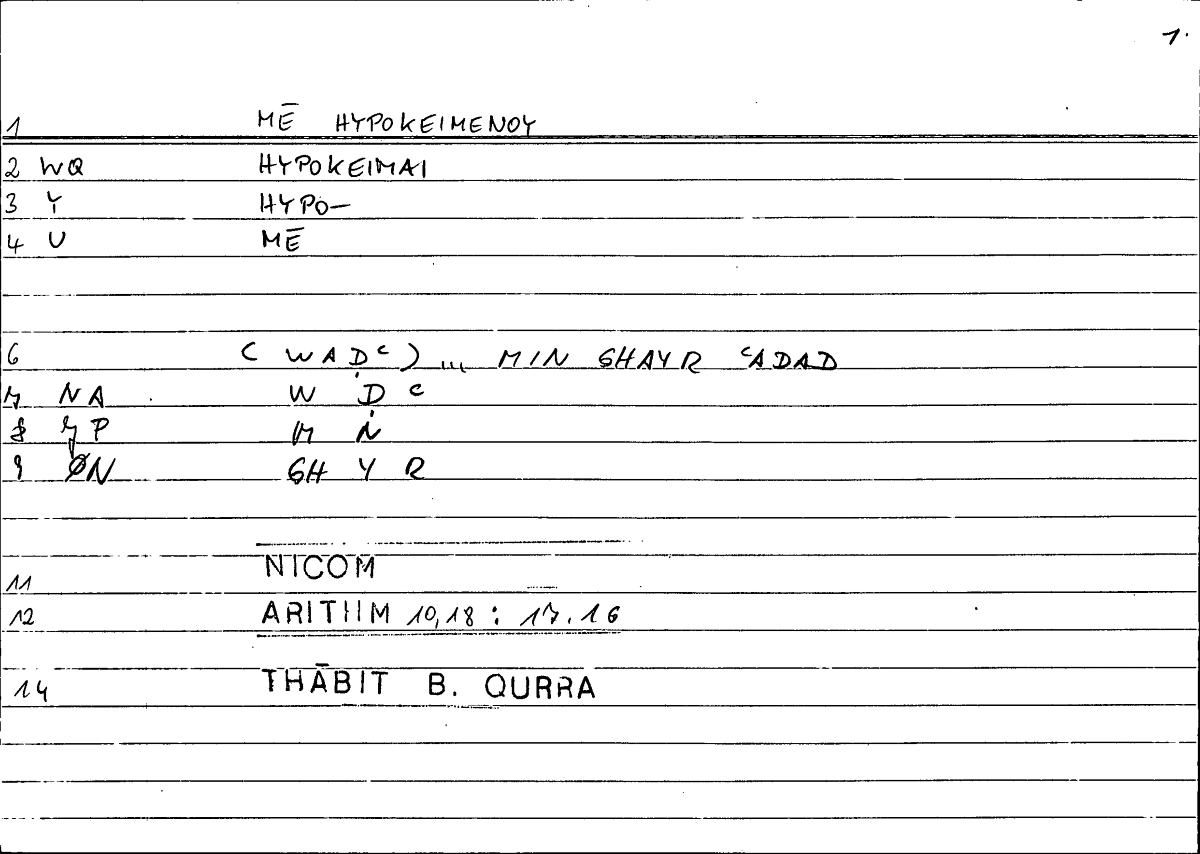 1.
1 MĒ HYPOKEIMENOY
2 WQ HYPOKEIMAI
3 Y HYPO—
4 U MĒ
6 ( WAḌᶜ) ... MIN GHAYR ᶜADAD
7 NA W Ḍ ᶜ
8 7P M N
9 ØN GH Y R
11 NICOM
12 ARITHM 10,18 : 17.16
14 THĀBIT B. QURRA